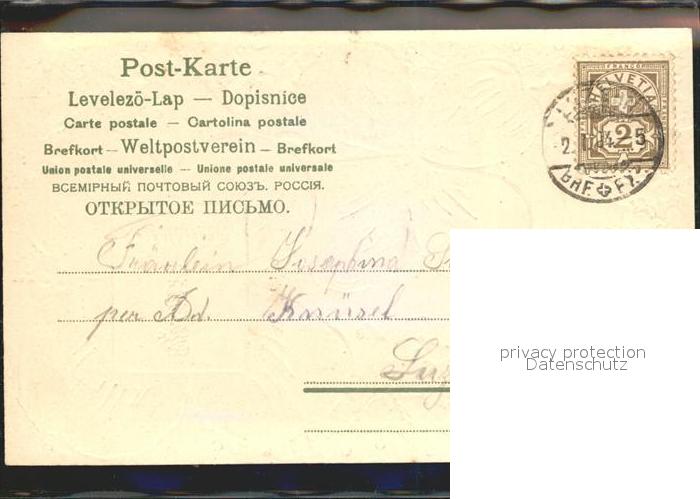 Post-Karte
Levelezö-Lap — Dopisnice
Carte postale — Cartolina postale
Brefkort — Weltpostverein — Brefkort
Union postale universelle — Unione postale universale
ВСЕМІРНЫЙ ПОЧТОВЫЙ СОЮЗЪ. РОССІЯ.
ОТКРЫТОЕ ПИСЬМО.
FRANCO
HELVETIA
2
Fräulein Josephina
per Ad. Knüsel
privacy protection
Datenschutz